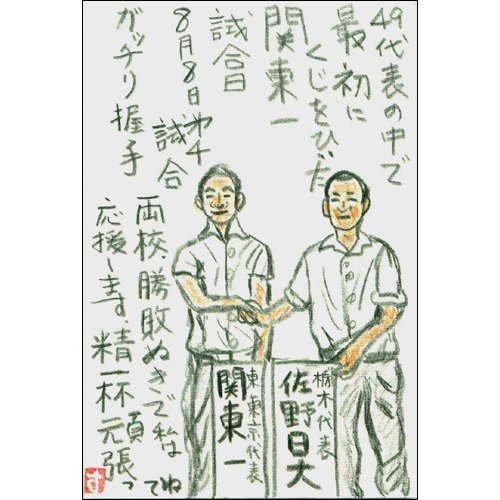 49代表の中で
最初に
くじをひいた
関東一
試合日
8月8日第4
試合
ガッチリ握手
両校、勝敗ぬきで私は
応援します、精一杯頑張っ
てね
栃木代表
佐野日大
東東京代表
関東一
す